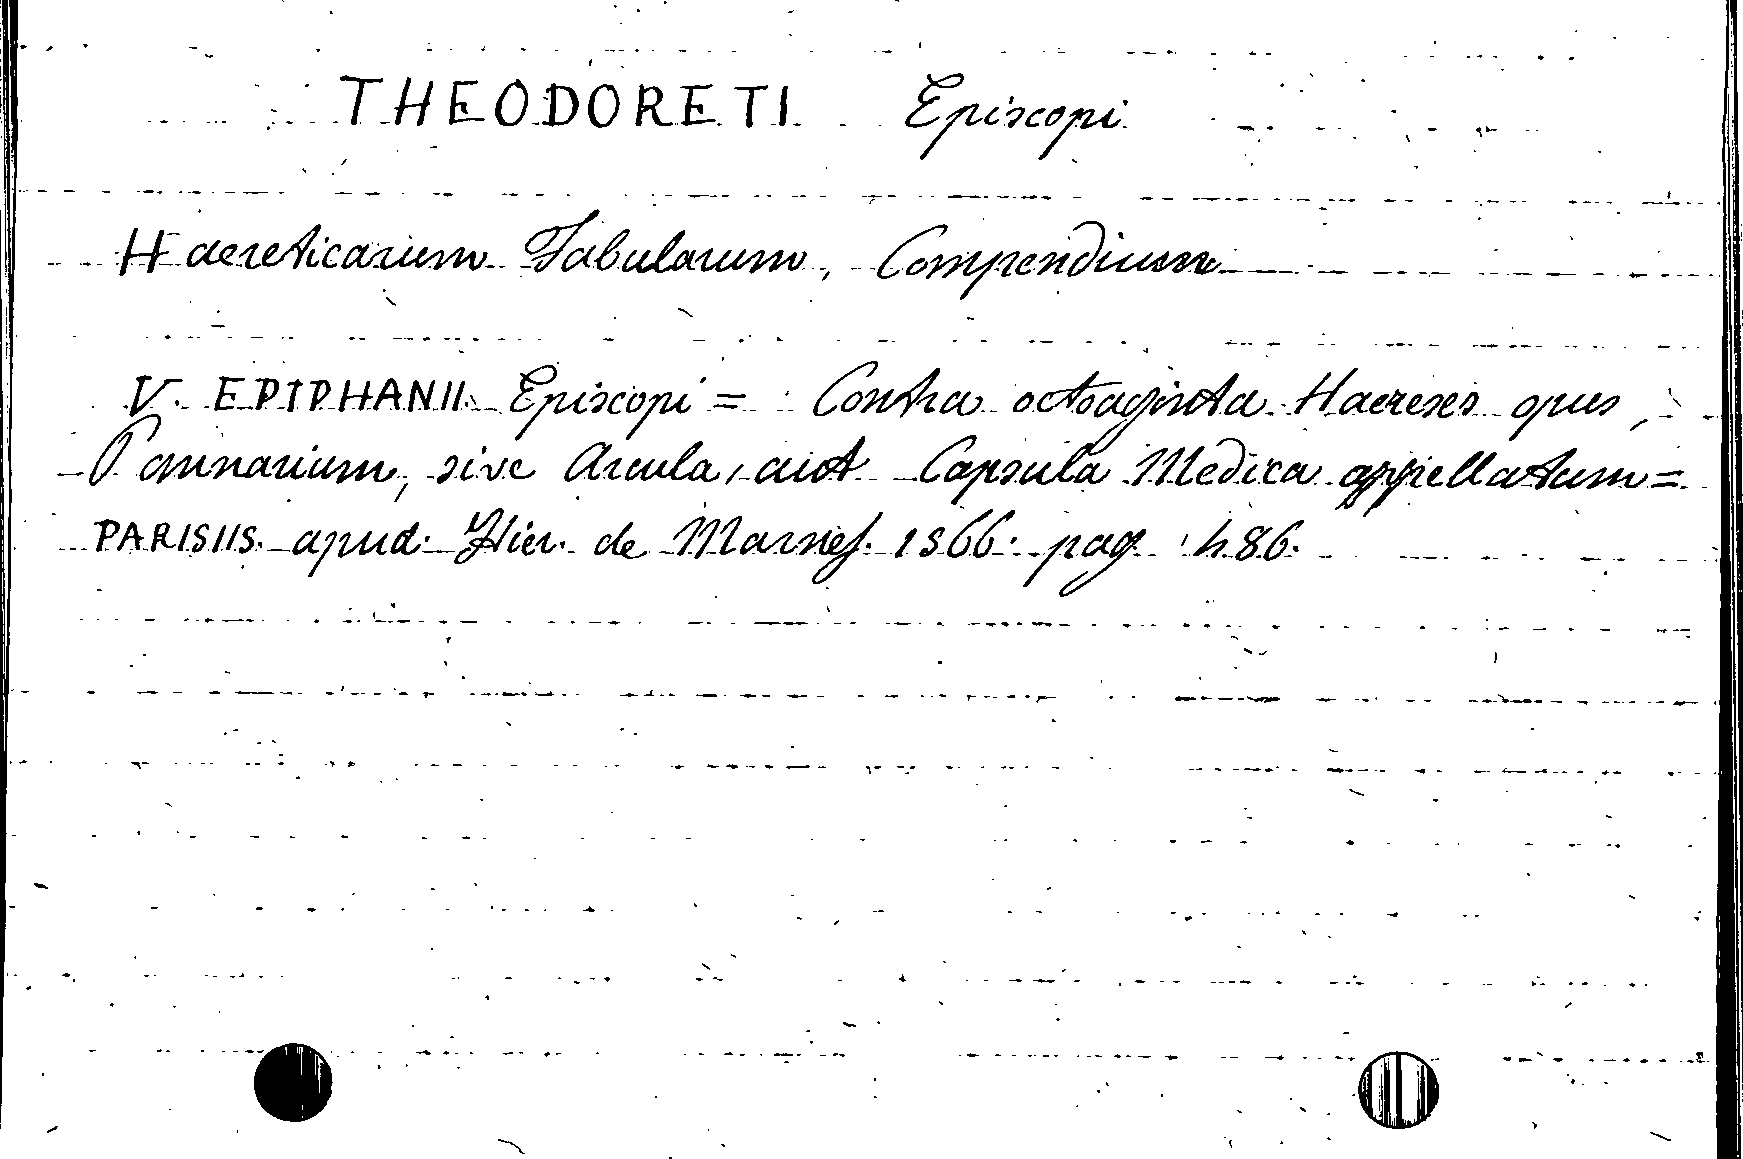 THEODORETI Episcopi
Haereticarum Fabularum, Compendium
V. EPIPHANII. Episcopi = Contra octaginta Haereses opus,
Pannarium, sive Arcula, aut Capsula Medica appellatum =
PARISIIS. apud. Hier. de Marnef. 1566. pag. 486.